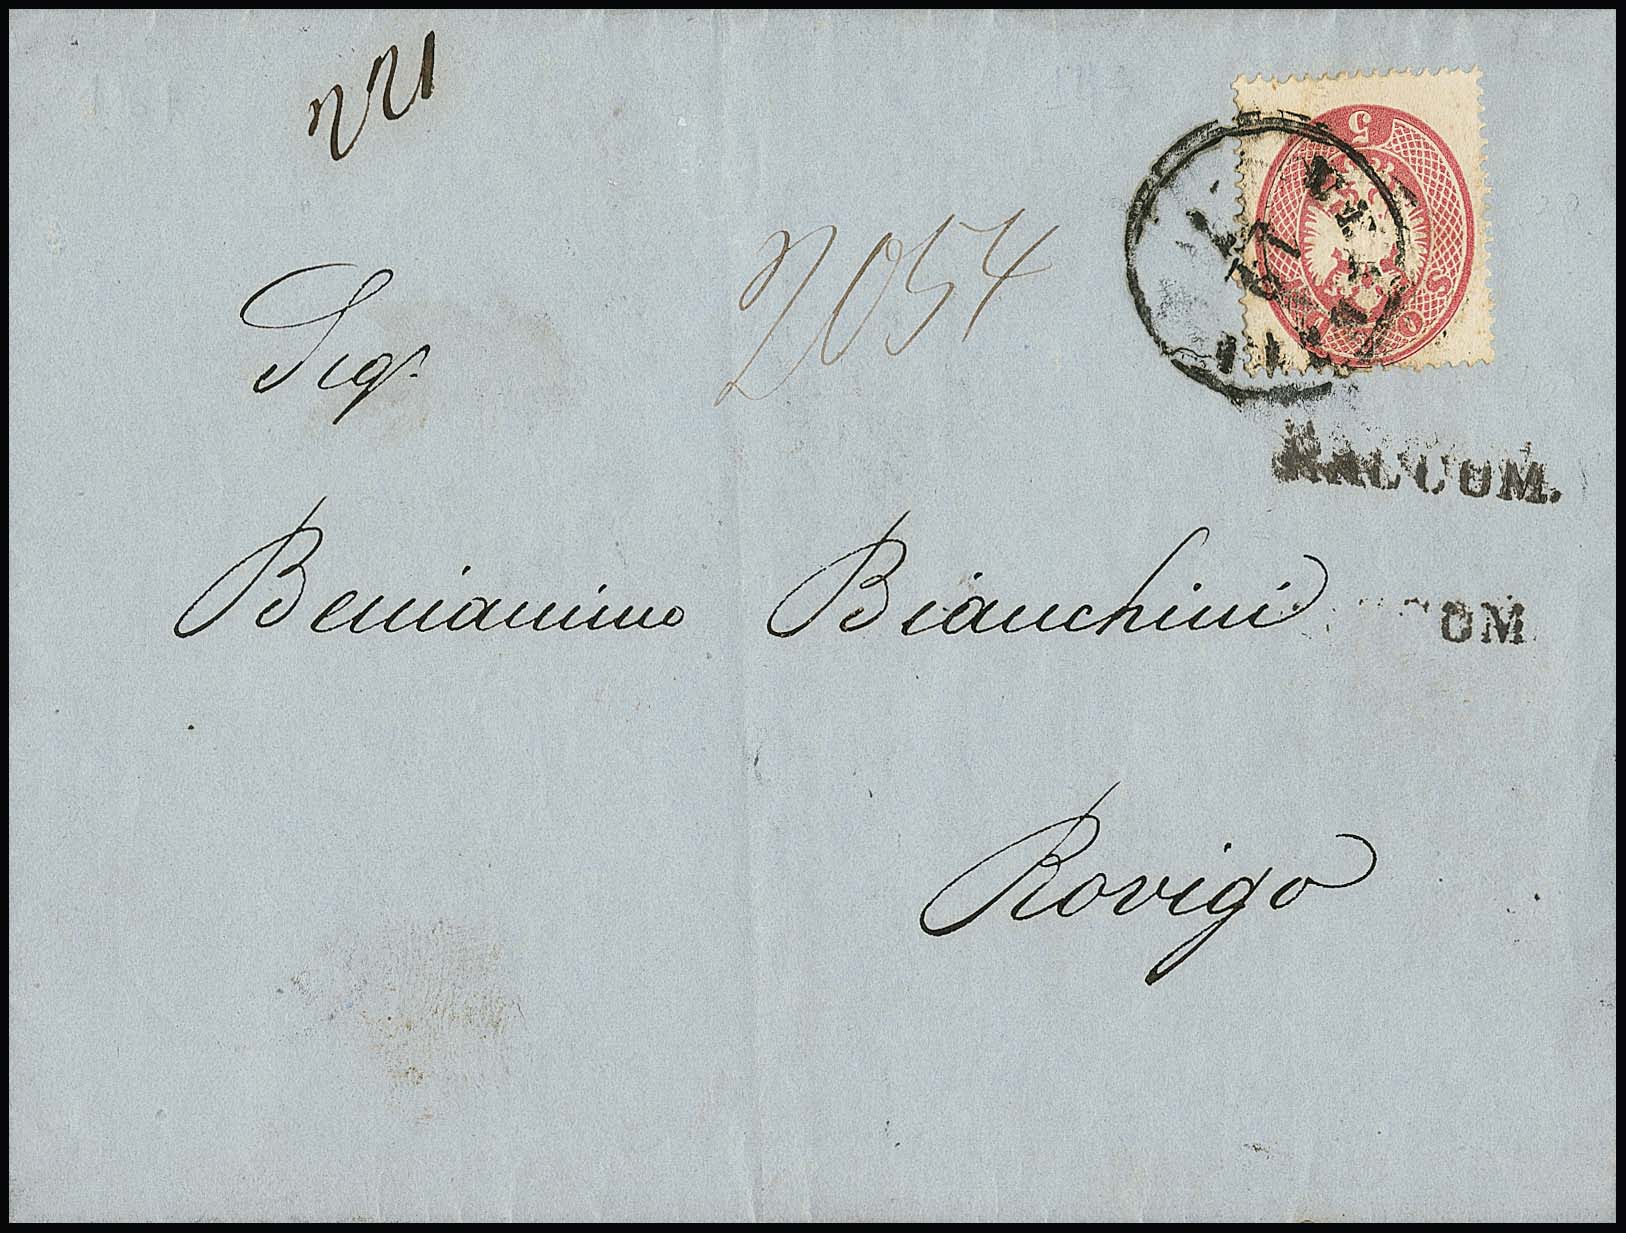 221
2054
5
SO
Sigr
RACCOM.
Beniamino Bianchini
OM
Rovigo